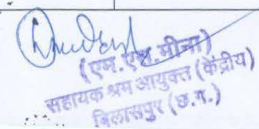 (एम.एल.मीना)
सहायक श्रम आयुक्त (केंद्रीय)
बिलासपुर (छ.ग.)